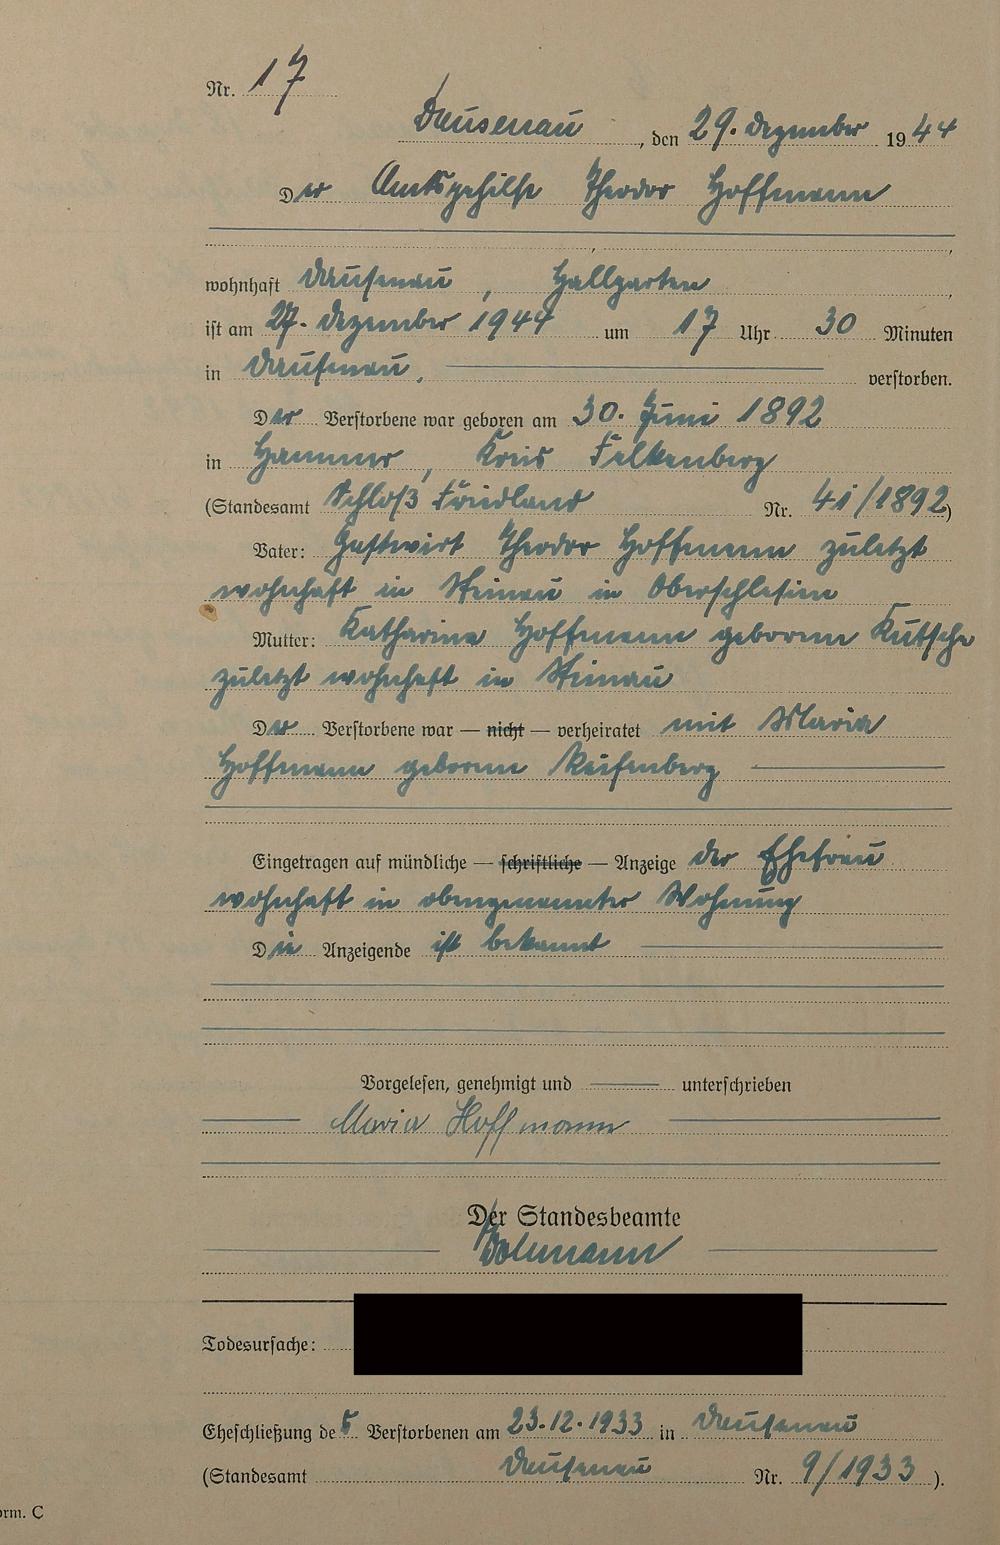 Nr. 17
Dausenau, den 29. Dezember 1944
Der Amtsgehilfe Theodor Hoffmann
wohnhaft Dausenau, Hallgarten,
ist am 27. Dezember 1944 um 17 Uhr 30 Minuten
in Dausenau, verstorben.
Der Verstorbene war geboren am 30. Juni 1892
in Hammer, Kreis Falkenberg
(Standesamt Schloß Friedland Nr. 41/1892)
Vater: Gastwirt Theodor Hoffmann zuletzt
wohnhaft in Steinau in Oberschlesien
Mutter: Katharina Hoffmann geborene Kutsche
zuletzt wohnhaft in Steinau
Der Verstorbene war — nicht — verheiratet mit Maria
Hoffmann geborene Reifenberg
Eingetragen auf mündliche — schriftliche — Anzeige der Ehefrau
wohnhaft in obengenannter Wohnung
Die Anzeigende ist bekannt
Vorgelesen, genehmigt und unterschrieben
Maria Hoffmann
Der Standesbeamte
Todesursache:
Eheschließung des Verstorbenen am 23.12.1933 in Dausenau
(Standesamt Dausenau Nr. 9/1933).
orm. C